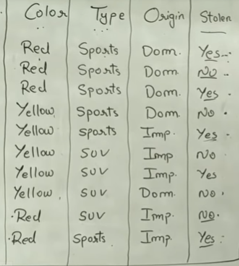 Color Type Origin Stolen
Red Sports Dom. Yes
Red Sports Dom. No
Red Sports Dom. Yes
Yellow Sports Dom No
Yellow sports Imp. Yes
Yellow SUV Imp No
Yellow SUV Imp. Yes
Yellow SUV Dom. No
Red SUV Imp. No
Red Sports Imp. Yes